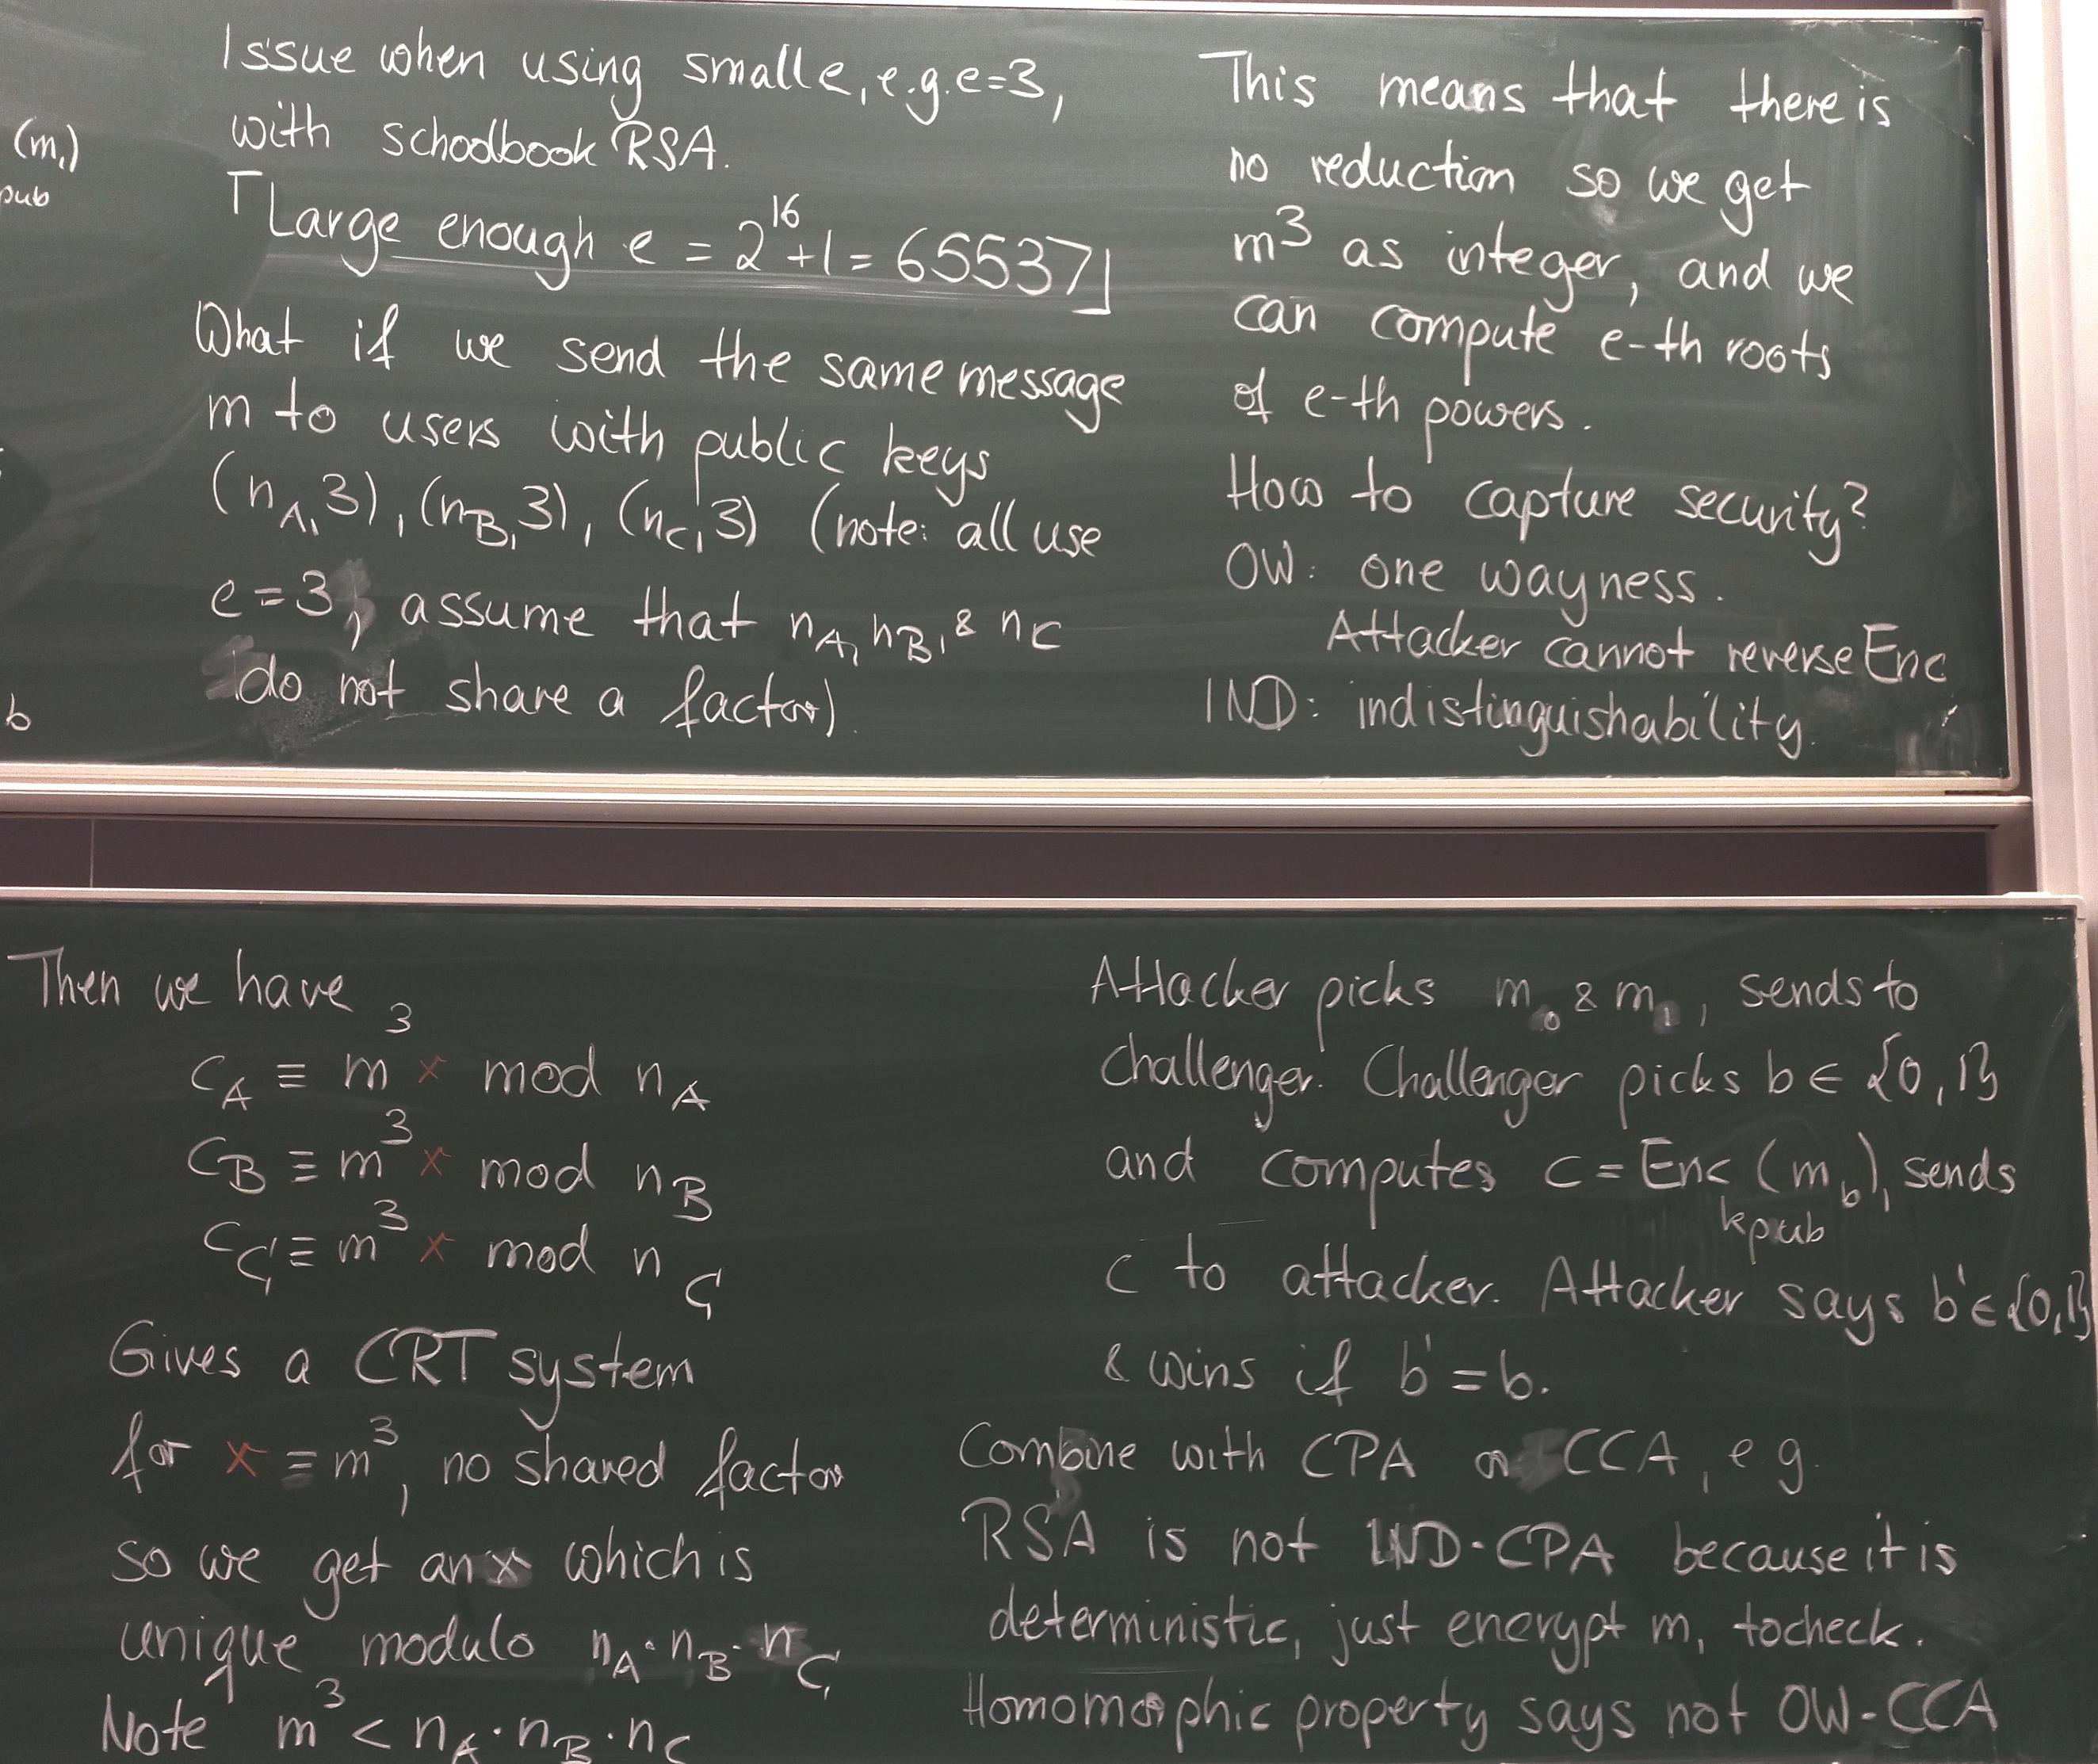 (m,)
pub
b
Issue when using small e, e.g. e=3,
with schoolbook RSA.
⌈Large enough e = 2^16+1 = 65537⌋
What if we send the same message
m to users with public keys
(n_A,3), (n_B,3), (n_C,3) (note: all use
e=3, assume that n_A, n_B, & n_C
do not share a factor).
Then we have
c_A ≡ m^3 x mod n_A
c_B ≡ m^3 x mod n_B
c_C ≡ m^3 x mod n_C
Gives a CRT system
for x ≡ m^3, no shared factor
so we get an x which is
unique modulo n_A·n_B·n_C
Note m^3 < n_A·n_B·n_C
This means that there is
no reduction so we get
m^3 as integer, and we
can compute e-th roots
of e-th powers.
How to capture security?
OW: one wayness.
Attacker cannot reverse Enc
IND: indistinguishability.
Attacker picks m_0 & m_1, sends to
challenger. Challenger picks b∈{0,1}
and computes c = Enc_kpub(m_b), sends
c to attacker. Attacker says b'∈{0,1}
& wins if b'=b.
Combine with CPA or CCA, e.g.
RSA is not IND-CPA because it is
deterministic, just encrypt m, to check.
Homomorphic property says not OW-CCA